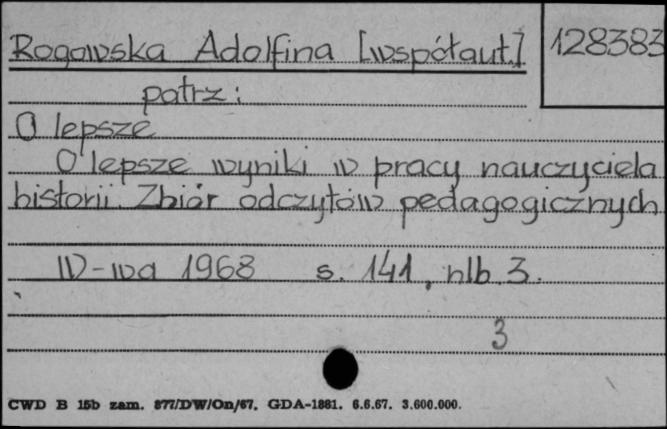 Rogowska Adolfina [współaut.] 128383
patrz:
O lepsze
O lepsze wyniki w pracy nauczyciela
historii. Zbiór odczytów pedagogicznych
W-wa 1968 s. 141, nlb. 3.
3
CWD B 15b zam. 877/DW/On/67. GDA-1881. 6.6.67. 3.600.000.